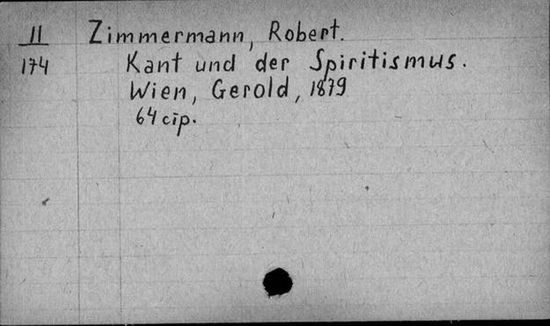 II
174
Zimmermann, Robert.
Kant und der Spiritismus.
Wien, Gerold, 1879
64 cīp.